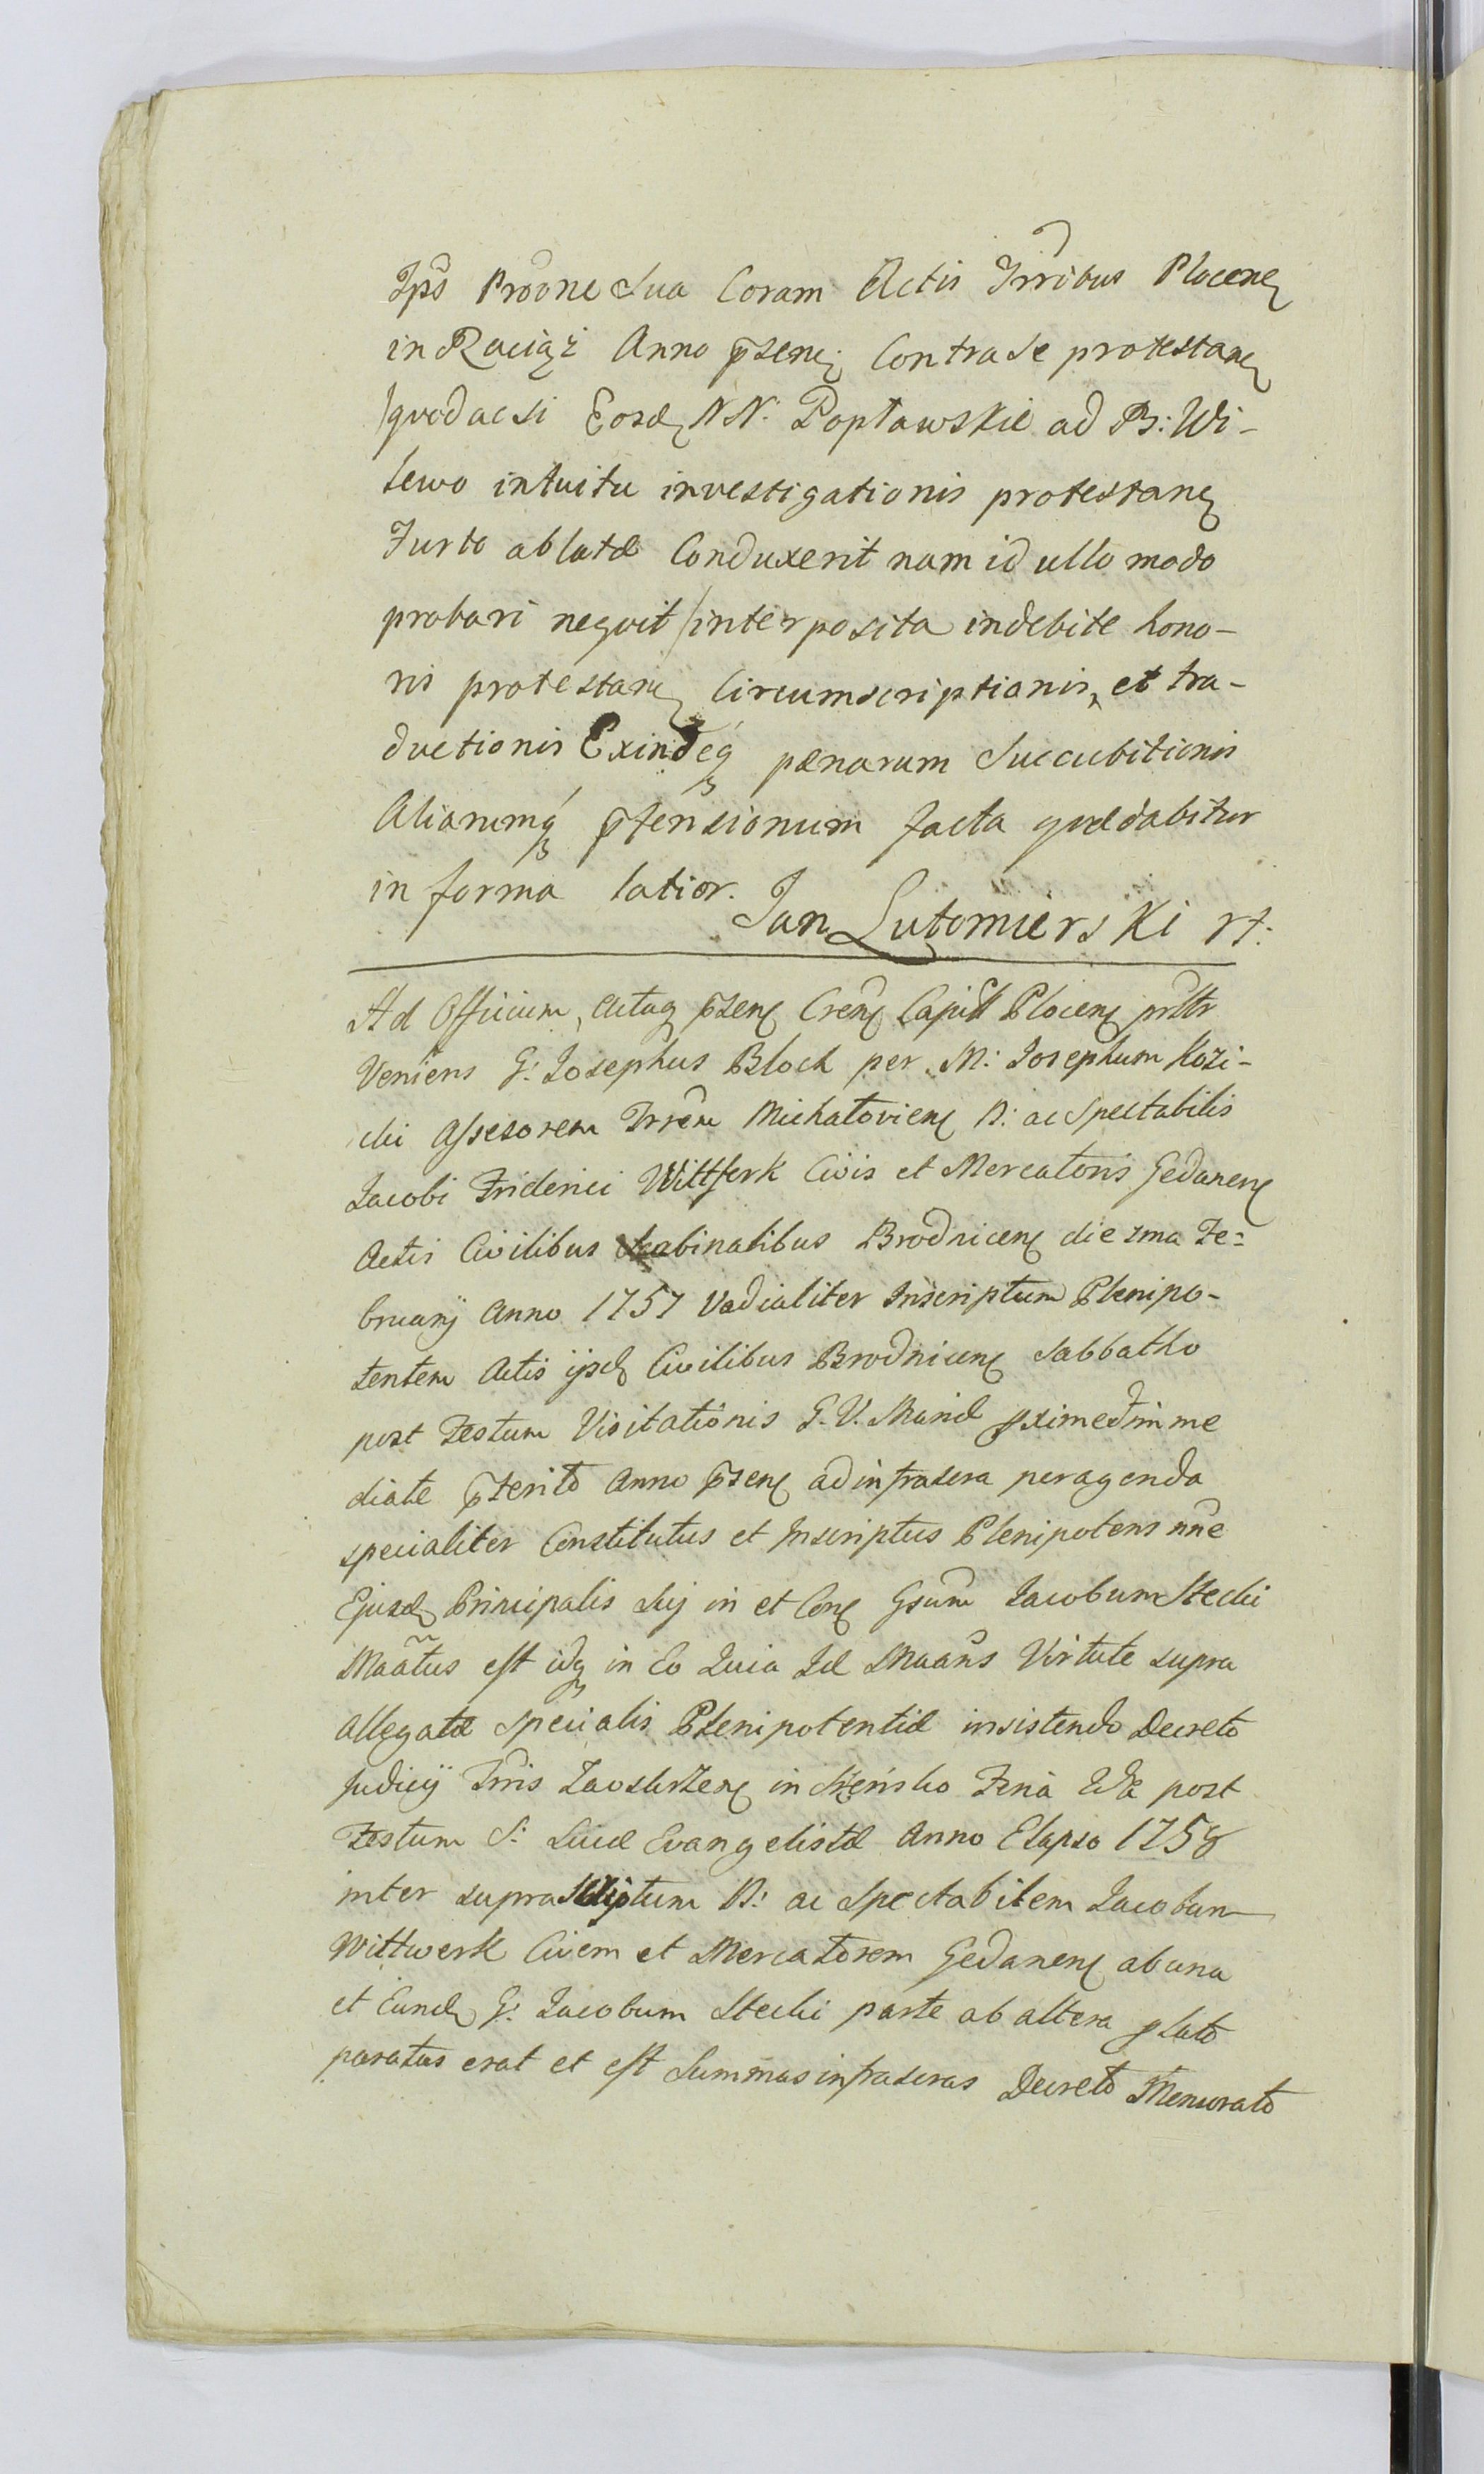 Ips Proone Sua Coram Actis Trribus Plocen
in Raciąż Anno psen Contra Se protestan
/quod ac si Eosd NN. Popławskie ad B: Wi-
lewo intuitu investigationis protestan
Furto ablatæ Conduxerit nam id ullo modo
probari nequit/interposita indebite hono-
ris protestan Circumscriptionis, et tra-
ductionis Exindeq pænarum Succubitionis
Aliarumq ptensionum facta quæ dabitur
in forma latior. Jan Lutomierski rt.
Ad Officium, Actaq psen Cren Capitt Plocen prltr
Veniens G: Josephus Block per M: Josephum Kozi-
cki Assesorem Trrem Michałovien N: ac Spectabilis
Jacobi Friderici Wittwerk Civis et Mercatoris Gedanen
Actis Civilibus Scabinalibus Brodnicen die 2ma Fe=
bruarij Anno 1757 Vadialiter Inscriptum Plenipo-
tentem Actis ijsd Civilibus Brodnicen Sabbatho
post Festum Visitationis B. V. Mariæ pxime et imme
diate pterito Anno psen ad infrascra peragenda
specialiter Constitutus et Inscriptus Plenipotens nne
Ejusd Principalis Sui in et Con Gsum Jacobum Stecki
Maatus est idq in Eo Quia Id Maans Virtute supra
Allegatæ specialis Plenipotentiæ insistendo Decreto
Judicij Trris Zawskrzen in Szreńsko Feria post
Festum S: Lucæ Evangelistæ Anno Elapso 1758
inter suprascriptum N: ac Spectabilem Jacobum
Wittwerk Civem et Mercatorem Gedanen ab una
et Eund G: Jacobum Stecki parte ab altera plato
paratus erat et est Summas infrascras Decreto Memorato